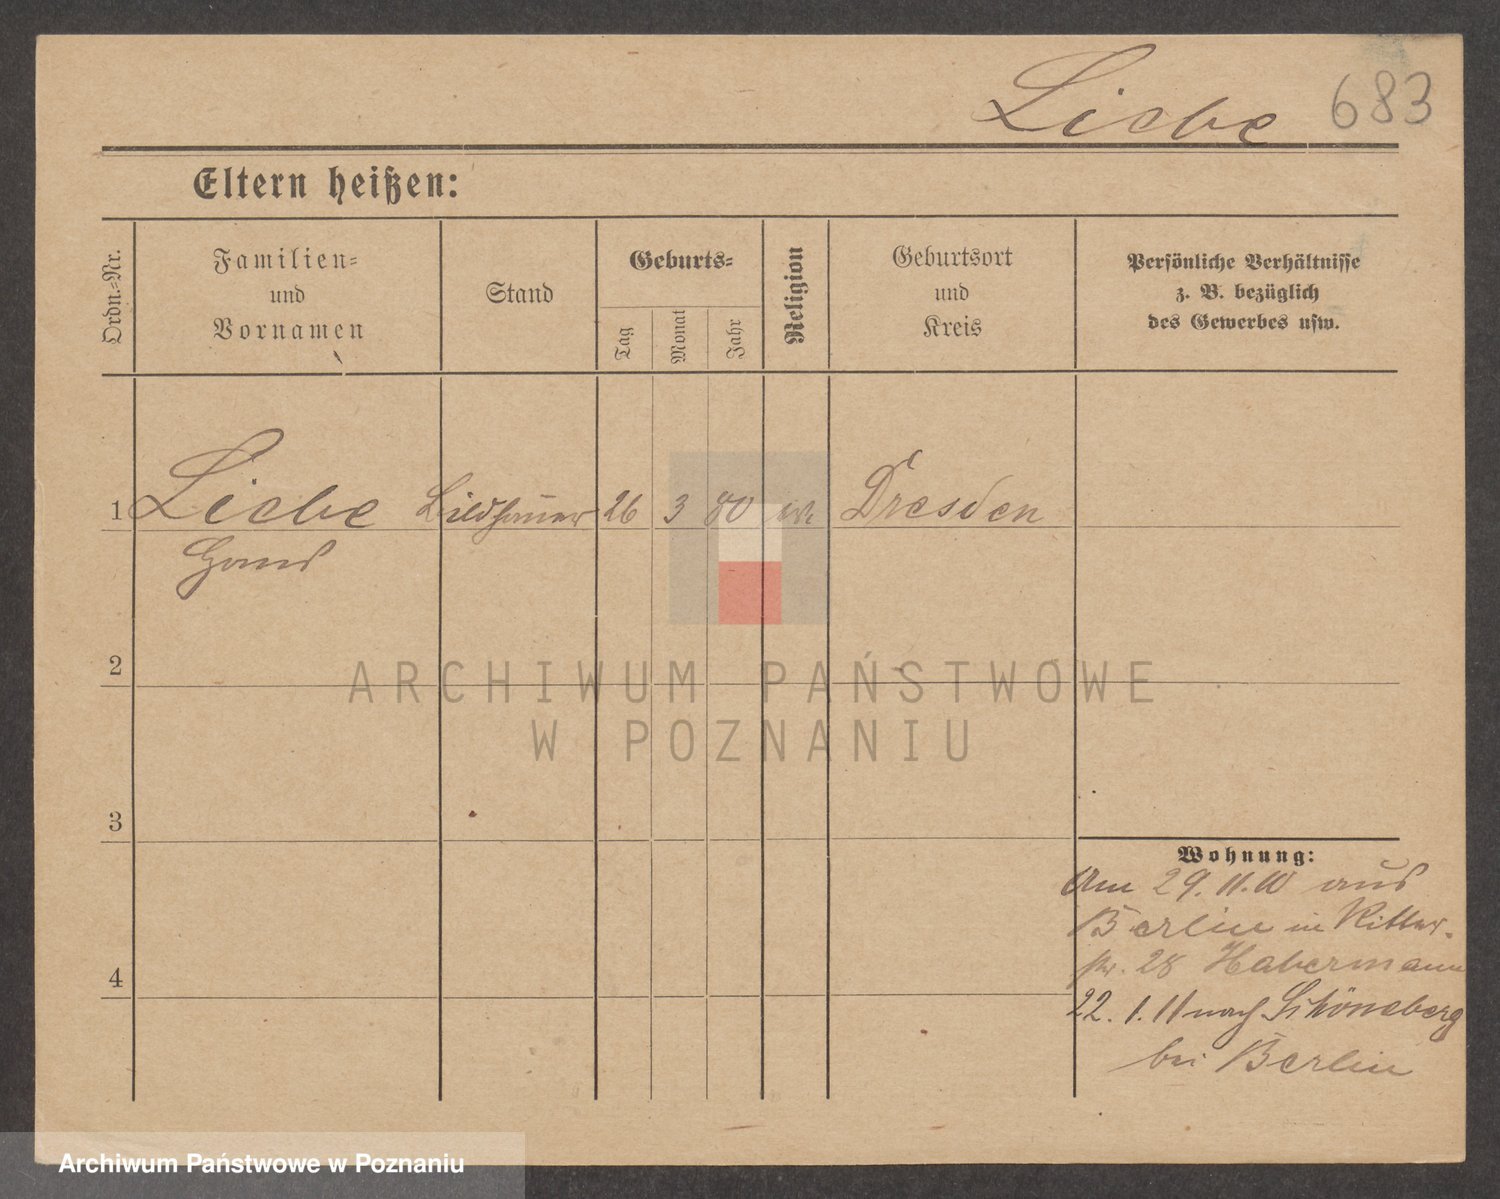 Liebe 683
Eltern heißen:
Ordn.-Nr.
Familien-
und
Vornamen
Stand
Geburts-
Tag
Monat
Jahr
Religion
Geburtsort
und
Kreis
Persönliche Verhältnisse
z. B. bezüglich
des Gewerbes usw.
1 Liebe Bildhauer 26 3 80 Dresden
Hans
2
3
4
Wohnung:
Am 29.11.10 aus
Berlin in Ritter-
str. 28 Habermann
22. 1. 11 nach Schöneberg
bei Berlin
ARCHIWUM PAŃSTWOWE
W POZNANIU
Archiwum Państwowe w Poznaniu